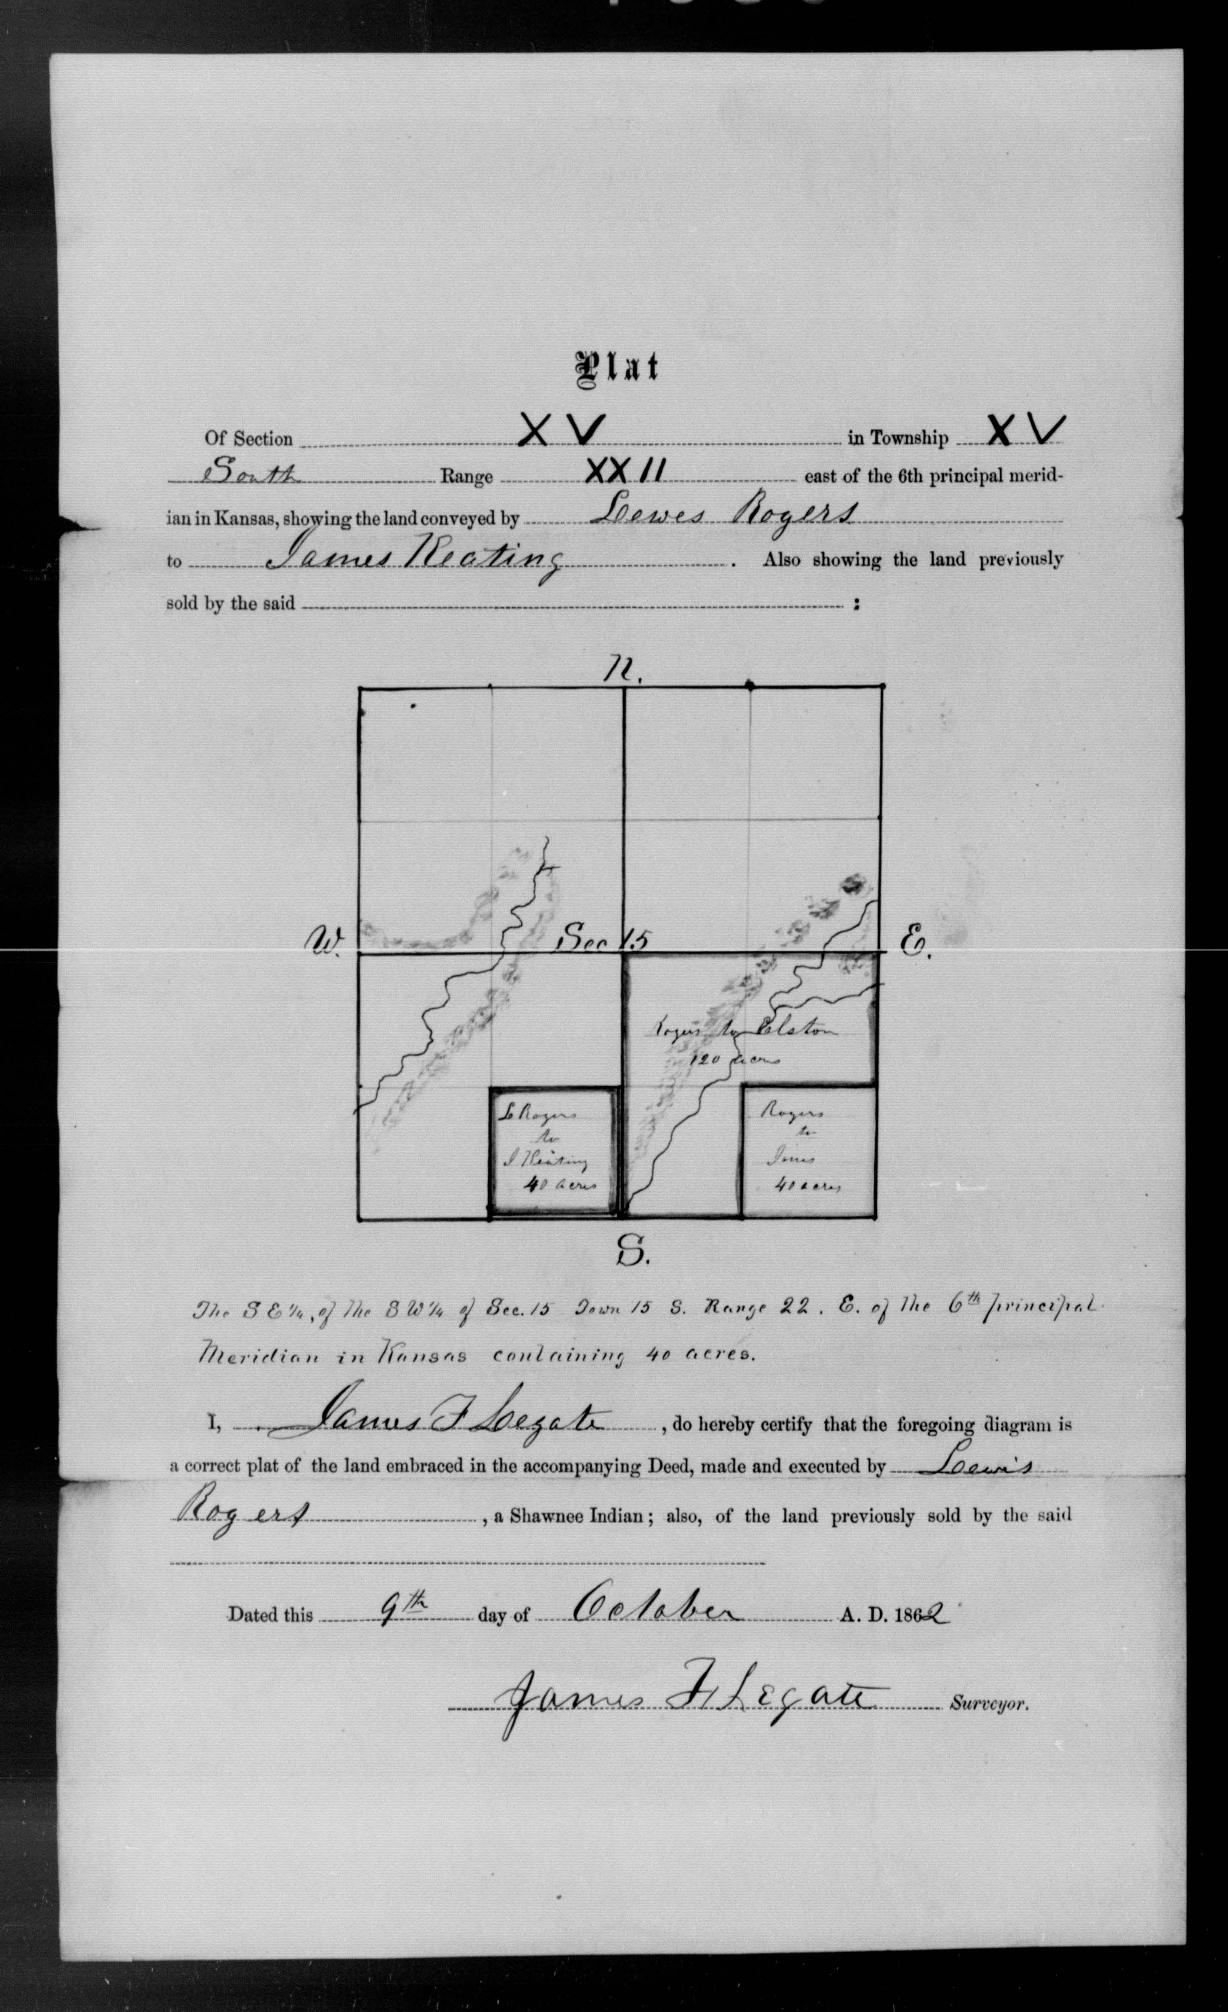 Plat
Of Section XV in Township XV
South Range XXII east of the 6th principal merid-
ian in Kansas, showing the land conveyed by Lewes Rogers
to James Keating . Also showing the land previously
sold by the said :
N.
W. Sec 15 E.
Rogers to Elston
120 acres
L Rogers
to
J Keating
40 acres
Rogers
to
Jones
40 acres
S.
The S E ¼, of the S W ¼ of Sec. 15 Town 15 S. Range 22. E. of the 6th principal
Meridian in Kansas containing 40 acres.
I, James F Legate , do hereby certify that the foregoing diagram is
a correct plat of the land embraced in the accompanying Deed, made and executed by Lewis
Rogers , a Shawnee Indian ; also, of the land previously sold by the said
Dated this 9th day of October A. D. 1862
James F Legate Surveyor.